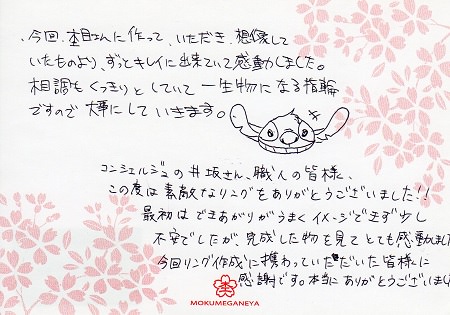 今回、杢目さんに作って、いただき、想像して
いたものより、ずっとキレイに出来ていて感動しました。
相調もくっきりとしていて一生物になる指輪
ですので大事にしていきます。
コンシェルジュの井坂さん、職人の皆様、
この度は素敵なリングをありがとうございました!!
最初はできあがりがうまくイメージできず少し
不安でしたが、完成した物を見てとても感動しました
今回リング作成に携わっていただいた皆様に
感謝です。本当にありがとうございまし
MOKUMEGANEYA